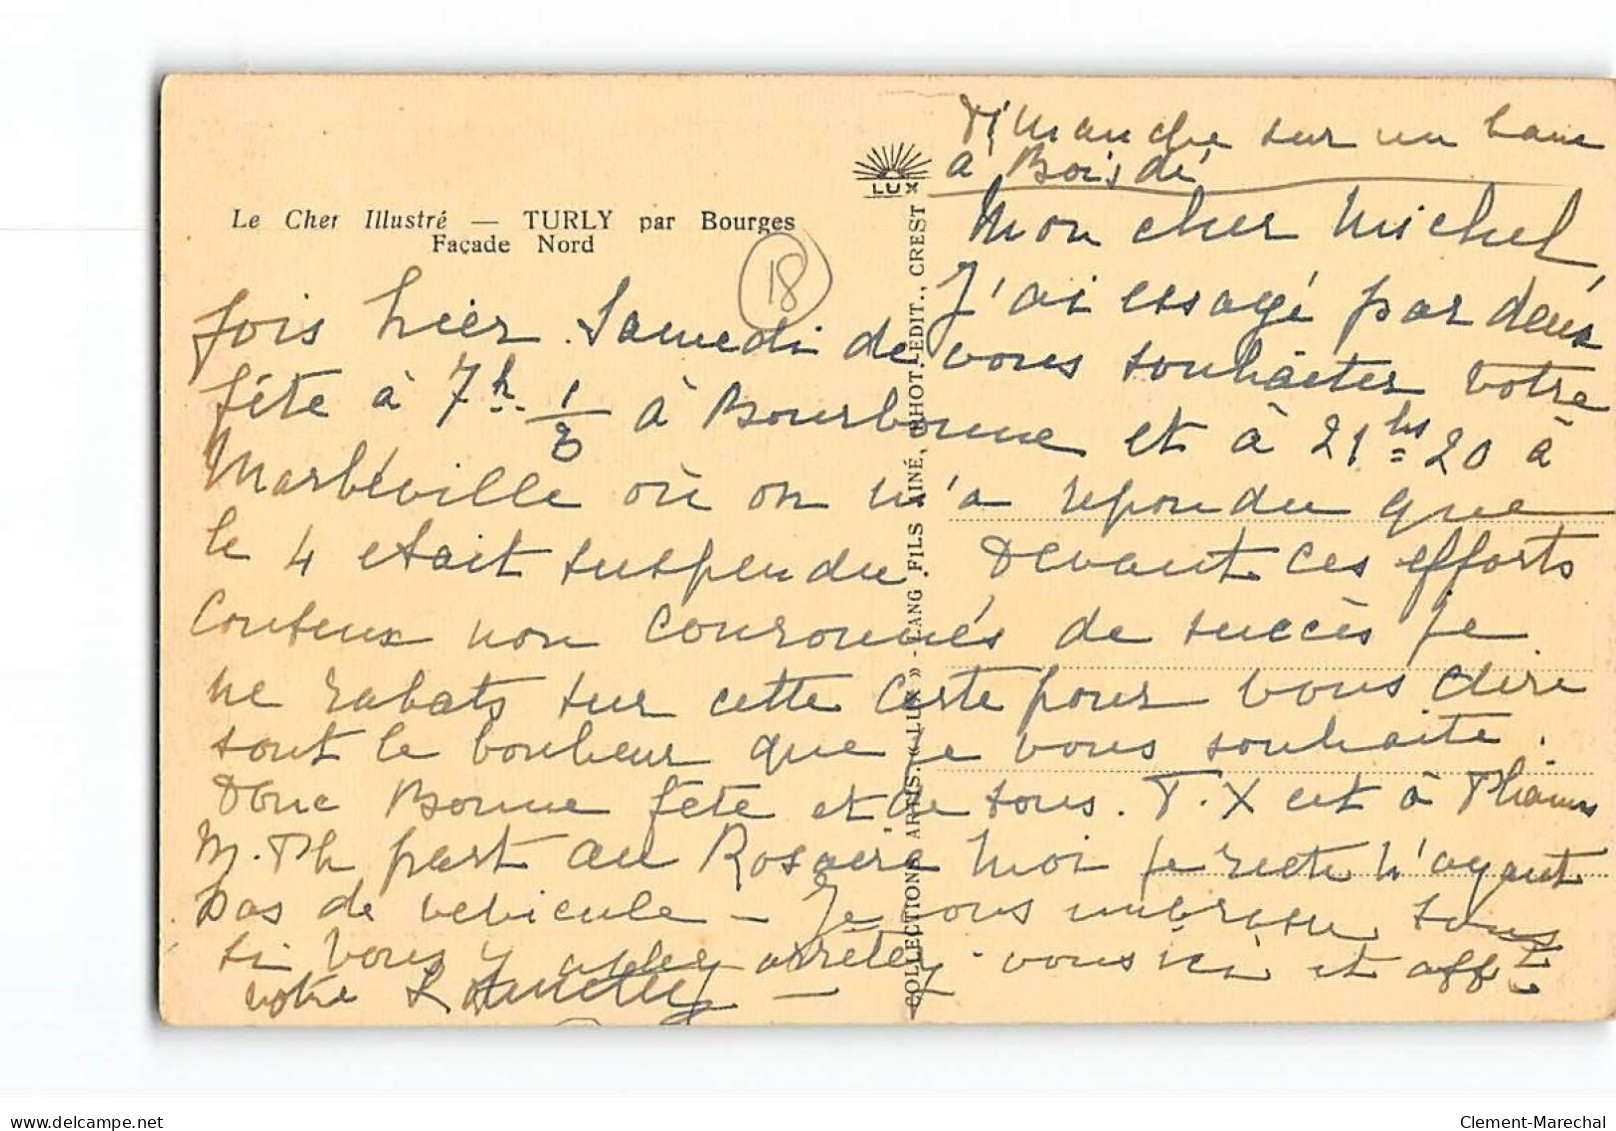 Dimanche sur un banc
à Boisdé
LUX
Le Cher Illustré — TURLY par Bourges
Façade Nord
18
Mon cher Michel
J'ai essayé par deux
fois hier Samedi de vous souhaiter votre
fête à 7h. 1/2 à Bourbonne et à 21 hs 20 à
Marbéville où on m'a repondu que
le 4 etait suspendu. Devant ces efforts
Couteux non couronnés de succès je
me rabats sur cette Carte pour vous dire
tout le bonheur que je vous souhaite.
Donc Bonne fête et de tous. T. X est à
M. Th part au Rosaire Moi je reste n'ayant
pas de vehicule — Je vous embrasse tous
si vous y allez arrêtez-vous ici et afft
votre
COLLECTIONS ARTIS. « LUX » - LANG FILS AINÉ, PHOT.-EDIT., CREST
delcampe.net
Clement-Marechal